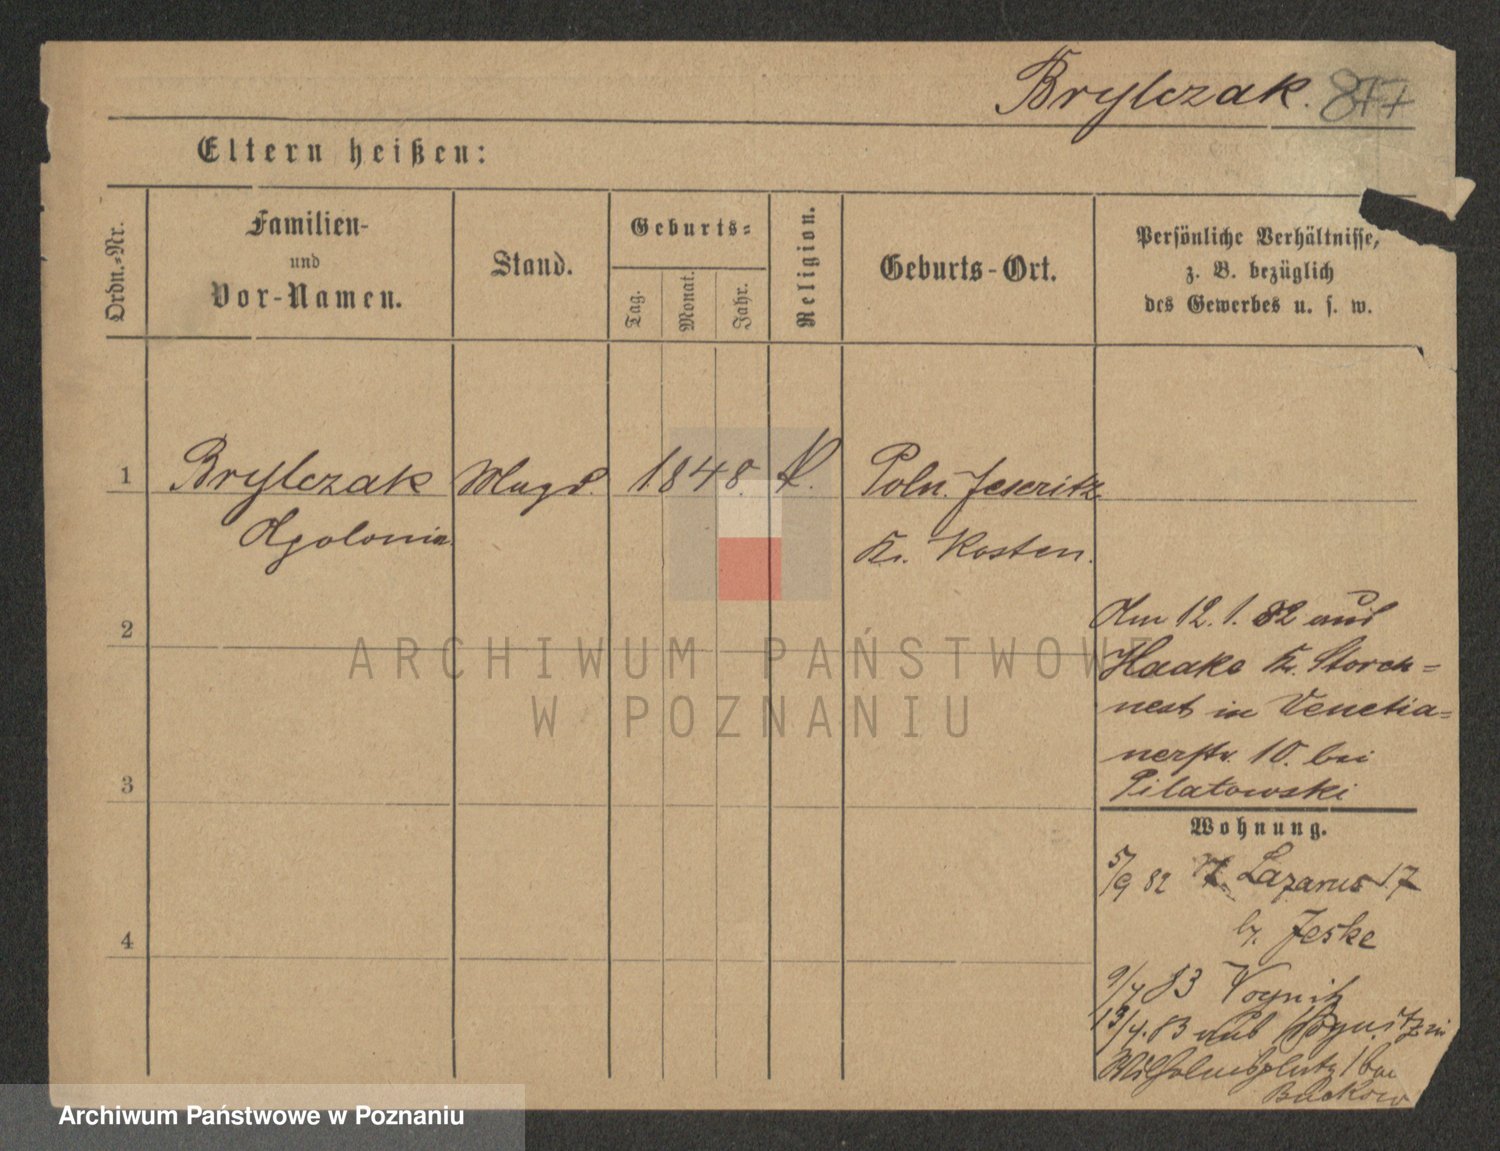 Brylczak. 877
Eltern heißen:
Ordn.-Nr.
Familien-
und
Vor-Namen.
Stand.
Geburts-
Tag.
Monat.
Jahr.
Religion.
Geburts-Ort.
Persönliche Verhältnisse,
z. B. bezüglich
des Gewerbes u. s. w.
1 Brylczak Magd. 1848. k. Poln. Jeseritz
Apolonia. Kr. Kosten.
2
Am 12. 1. 82 aus
Haake Kr. Storch-
nest in Venetia-
nerstr. 10. bei
Pilatowski
3
Wohnung.
5/9 82 St. Lazarus 17
b. Jeske
4
9/4 83
13/4. 83 aus
Wilhelmsplatz
Buckow
ARCHIWUM PAŃSTWOWE
W POZNANIU
Archiwum Państwowe w Poznaniu